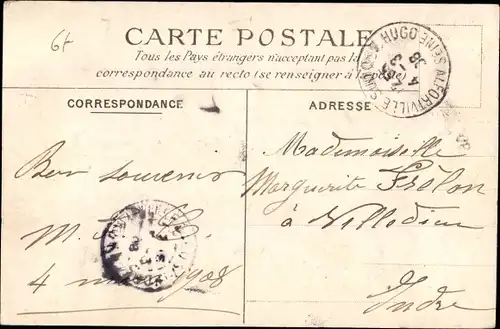 6f
CARTE POSTALE
Tous les Pays étrangers n'acceptant pas la
correspondance au recto (se renseigner à la poste)
CORRESPONDANCE
ADRESSE
ALFORTVILLE SEINE
Bon souvenir
M.
4 1908
Mademoiselle
Marguerite Frélon
à Villedieu
Indre